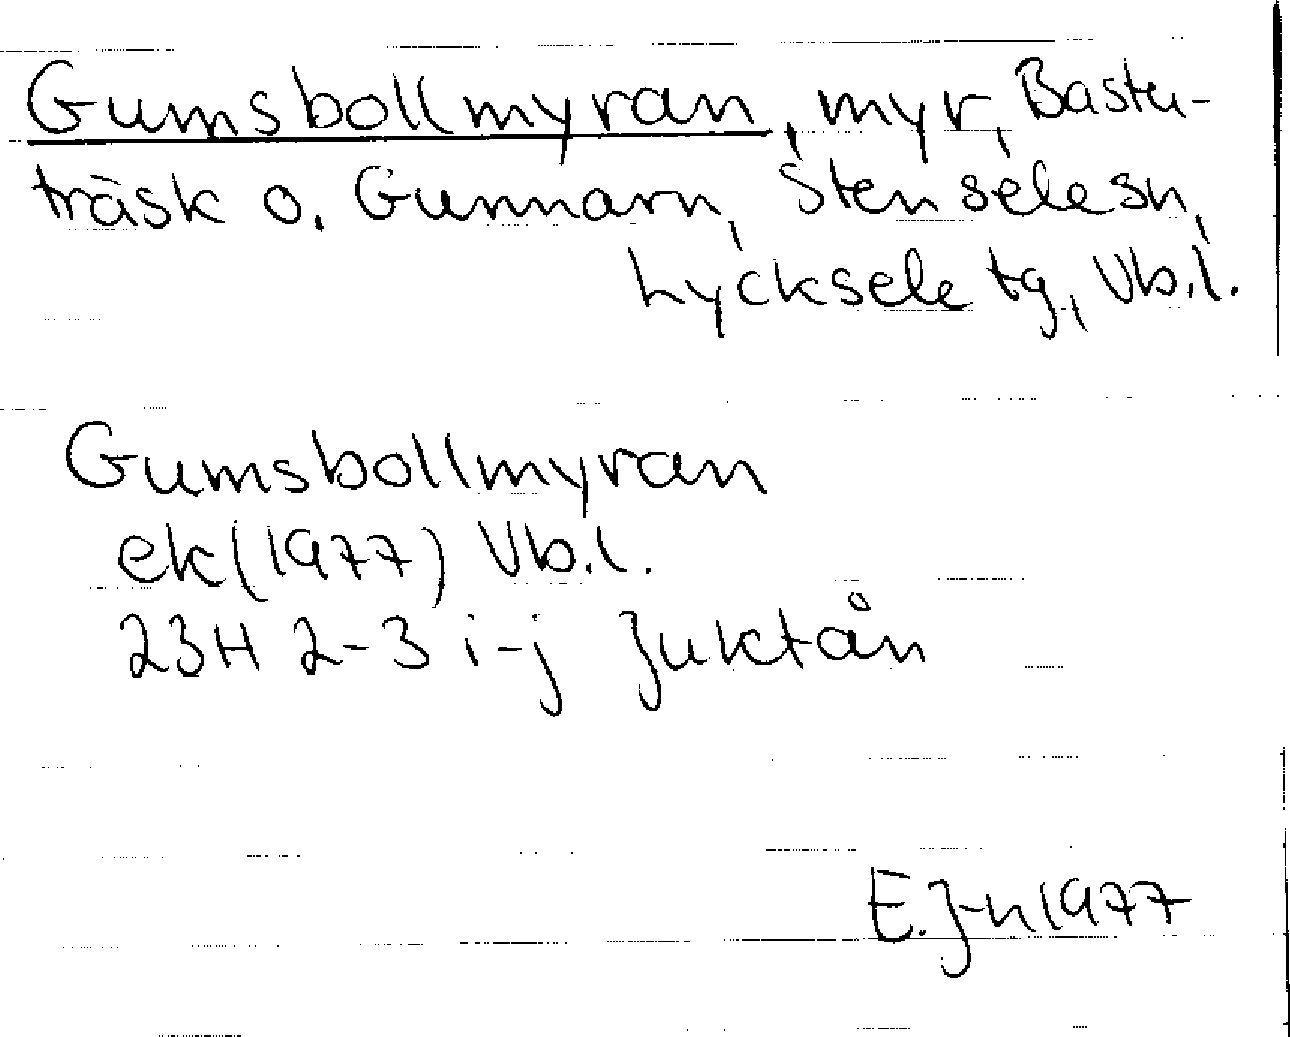 Gumsbollmyran, myr, Bastu-
träsk o. Gunnarn, Stensele sn,
Lycksele tg, Vb.l.
Gumsbollmyran
ek (1977) Vb.l.
23H 2-3 i-j Juktån
E.J-n 1977